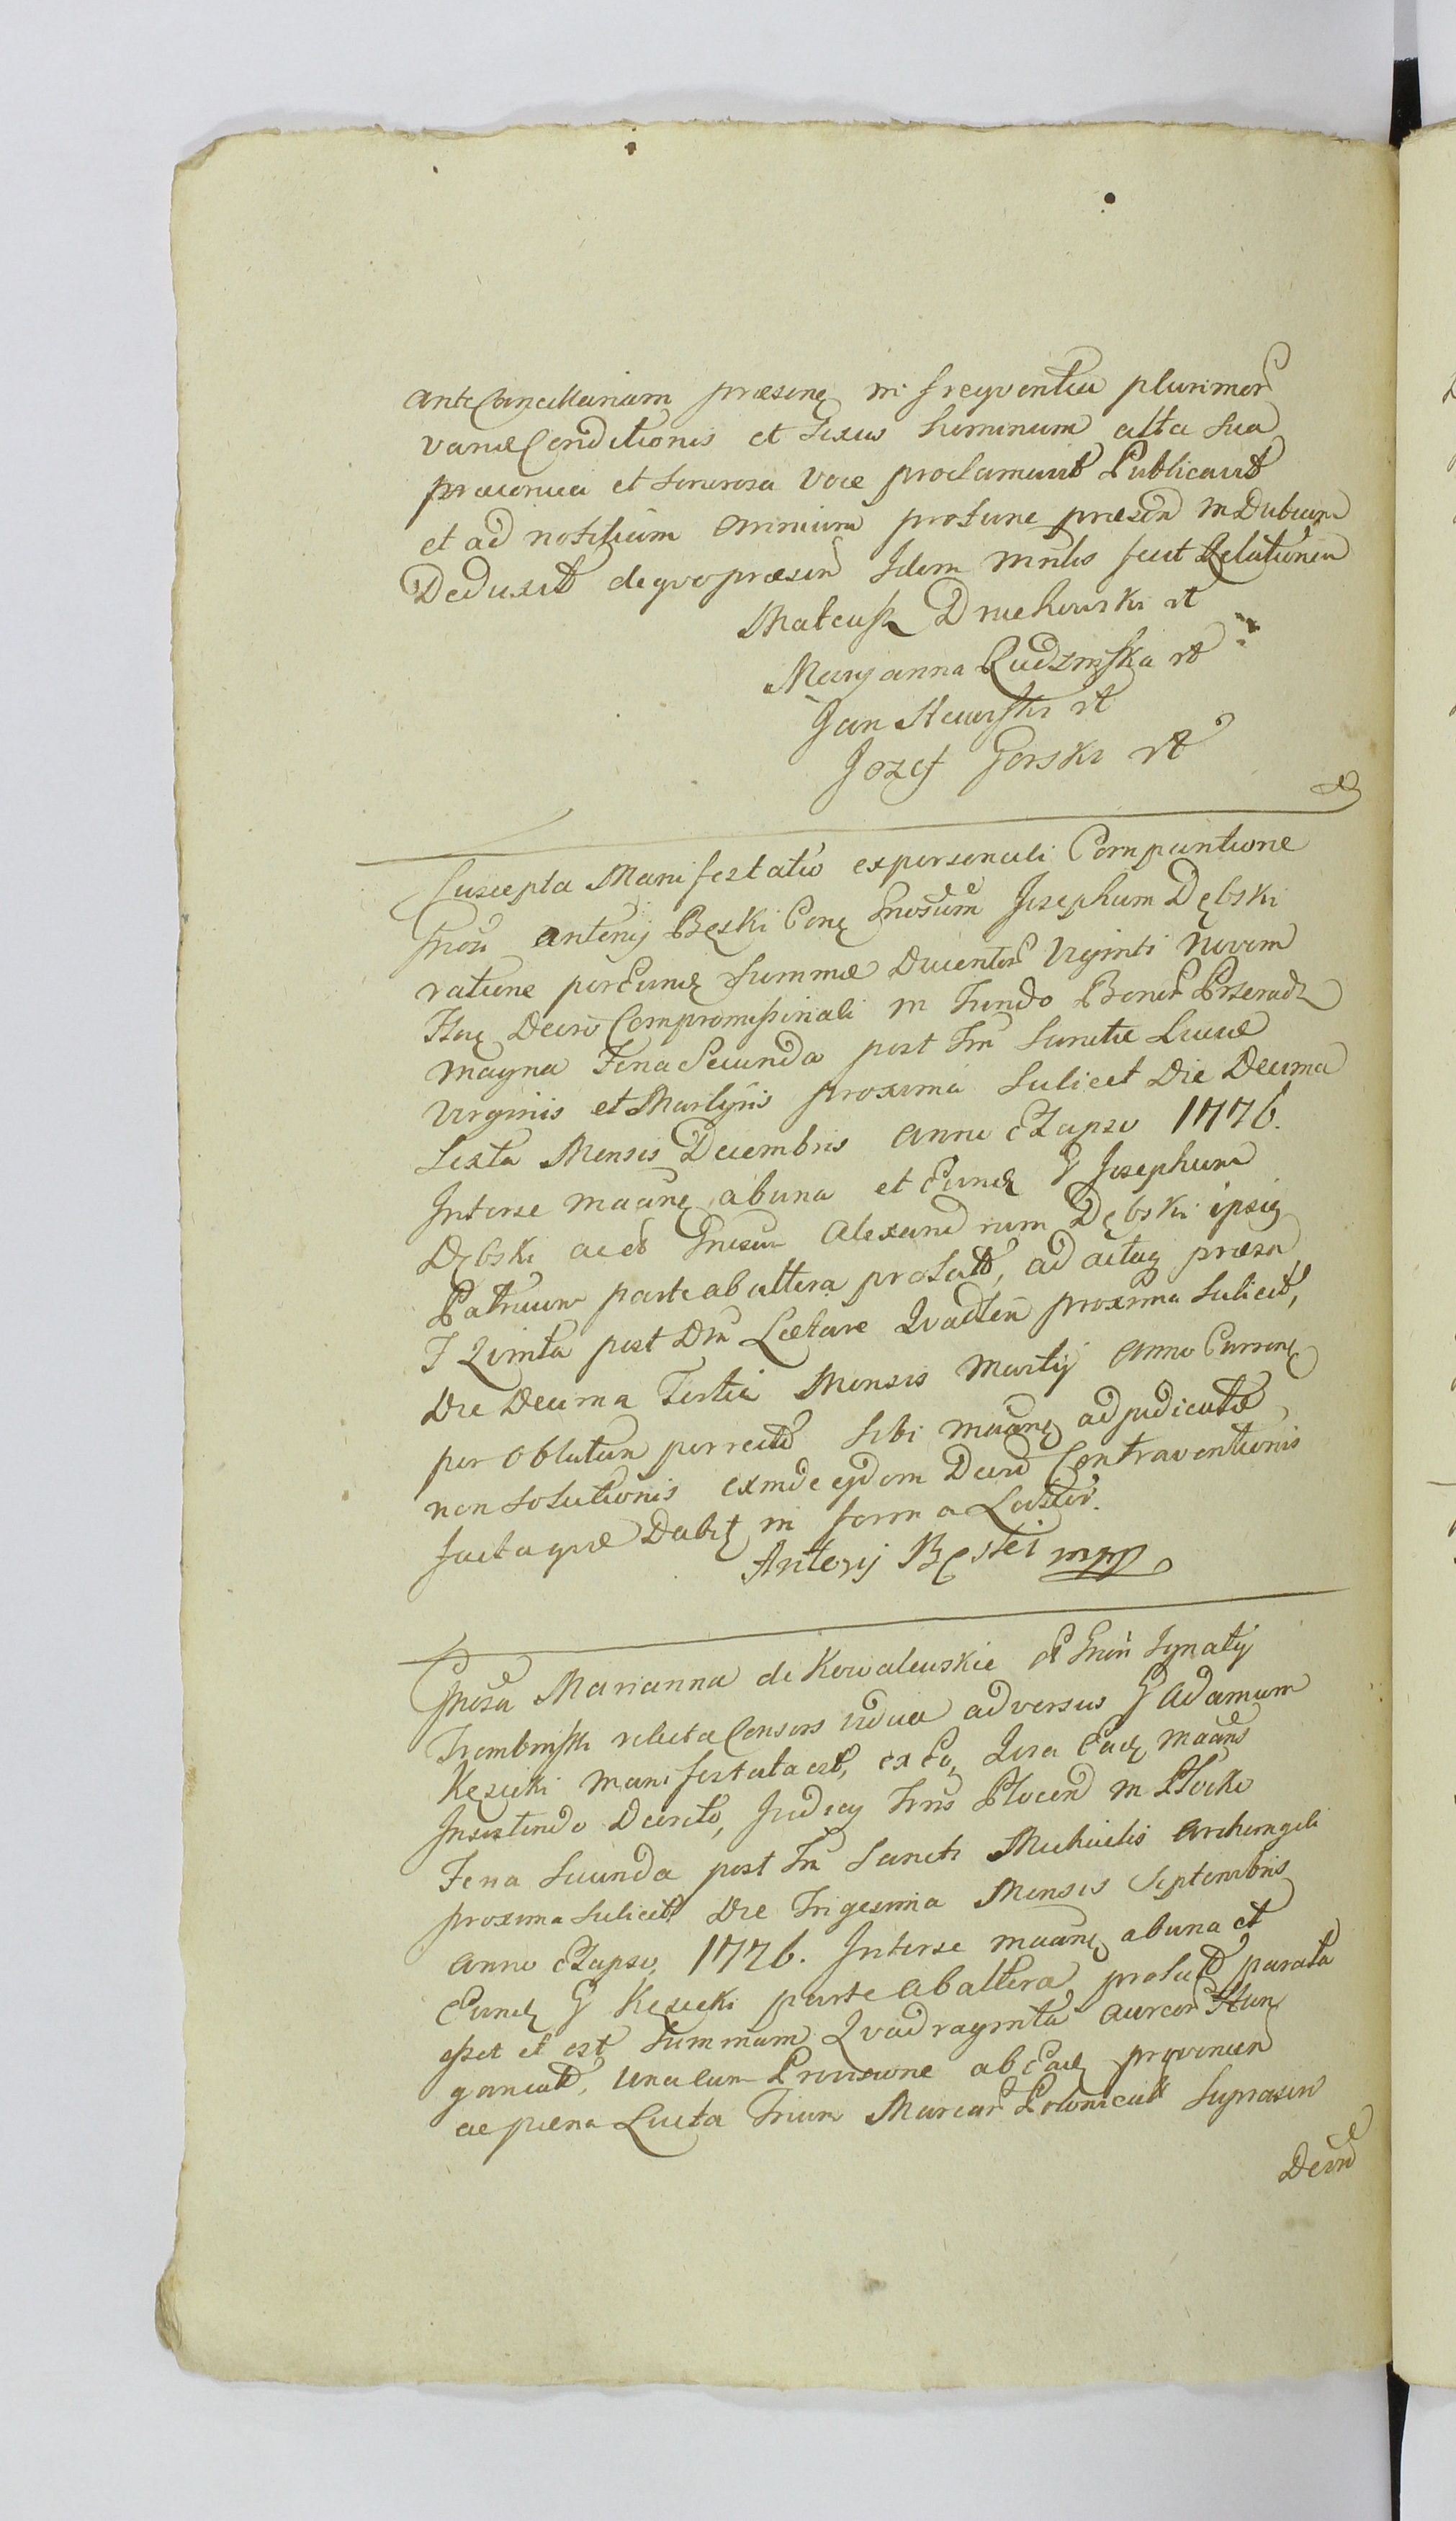 ante Cancellariam præsenę in freqventia plurimor
variæ Conditionis et sexus hominum alta sua
præconica et sonorosa voce proclamavit Publicavit
et ad notitiam omnium protunc præsen indubiam
Deduxit deqvo præsen Idem mnlis fecit Relationem
Mateusz Druchowski rt
Maryanna Rudzinska rt
Jan Skawski rt
Jozef Gorski rt
Suscepta Manifestatio expersonali Comparitione
Gnosi Antonij Bęski Conę Gnosum Josephum Dębski
ratione per Eundę Summæ Ducentor Viginti Novem
Decro Compromissionali in Fundo Bonor Pszeradz
magna Feria Secunda post Fm Sanctæ Luciæ
Virginis et Martyris proxima Scilicet Die Decima
Sexta Mensis Decembris Anno Elapso 1776.
Interse maanę abuna et Eundę G Josephum
Dębski ac et Gnosum Alexandrum Dębski ipsię
Patruum parte abaltera prolato, ad actaę præsen
F Qvinta post Dm Lætare Qvadlen proxima Scilicet,
Die Decima Tertia Mensis Martij Anno Currenę
per Oblatam porrecto Sibi maanę adjudicatæ
non Solutionis exinde ejdem Decro Contraventionis
factaqve Dabię in forma Latior.
Antonij Bęski mpp
Gnosa Marianna de Kowalewskie G Gnosi Ignatij
Trembinski relicta Consors vidua adversus G Adamum
Kęsicki manifestata est, ex Eo, Qvia Eadę maans
Insistendo Decreto, Judicy Trris Plocen in Plocko
Feria Secunda post Fm Sancti Michaelis Archangeli
proxima Scilicet Die Trigesima Mensis Septembris
Anno Elapso, 1776. Interse maanę abuna et
Eundę G Kęsicki parte abaltera prolato parata
esset et est Summam Qvadraginta aureor Hun
garicał, unacum Provisione ab Eadę provenien
ac pæna Lucta Trium Marcar Polonicał Suprascn
Decro